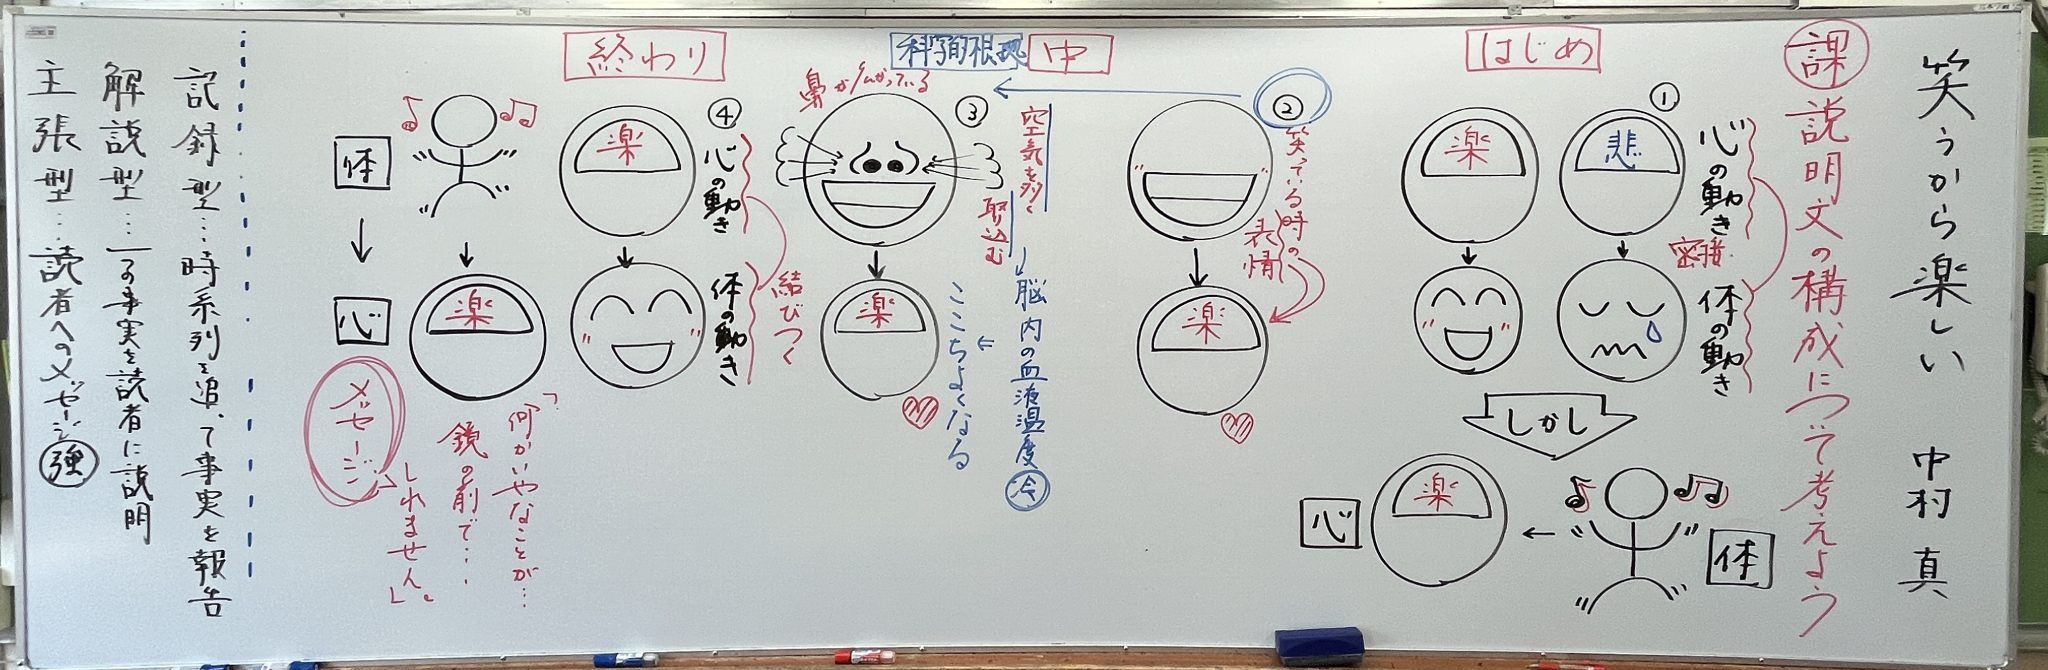 笑うから楽しい　中村　真
課 説明文の構成について考えよう
はじめ
①
心の動き
密接
体の動き
悲
楽
しかし
体
心
楽
中
科学的根拠
②
笑っている時の
表情
楽
③
空気を多く
取込む
↓脳内の血液温度 冷
←
ここちよくなる
鼻がふくがっている
楽
終わり
④
心の動き
結びつく
体の動き
楽
体
↓
心
楽
「何かいやなことが…
鏡の前で…
しれません。」
メッセージ
記録型…時系列を追って事実を報告
解説型…一つの事実を読者に説明
主張型…読者へのメッセージ 強